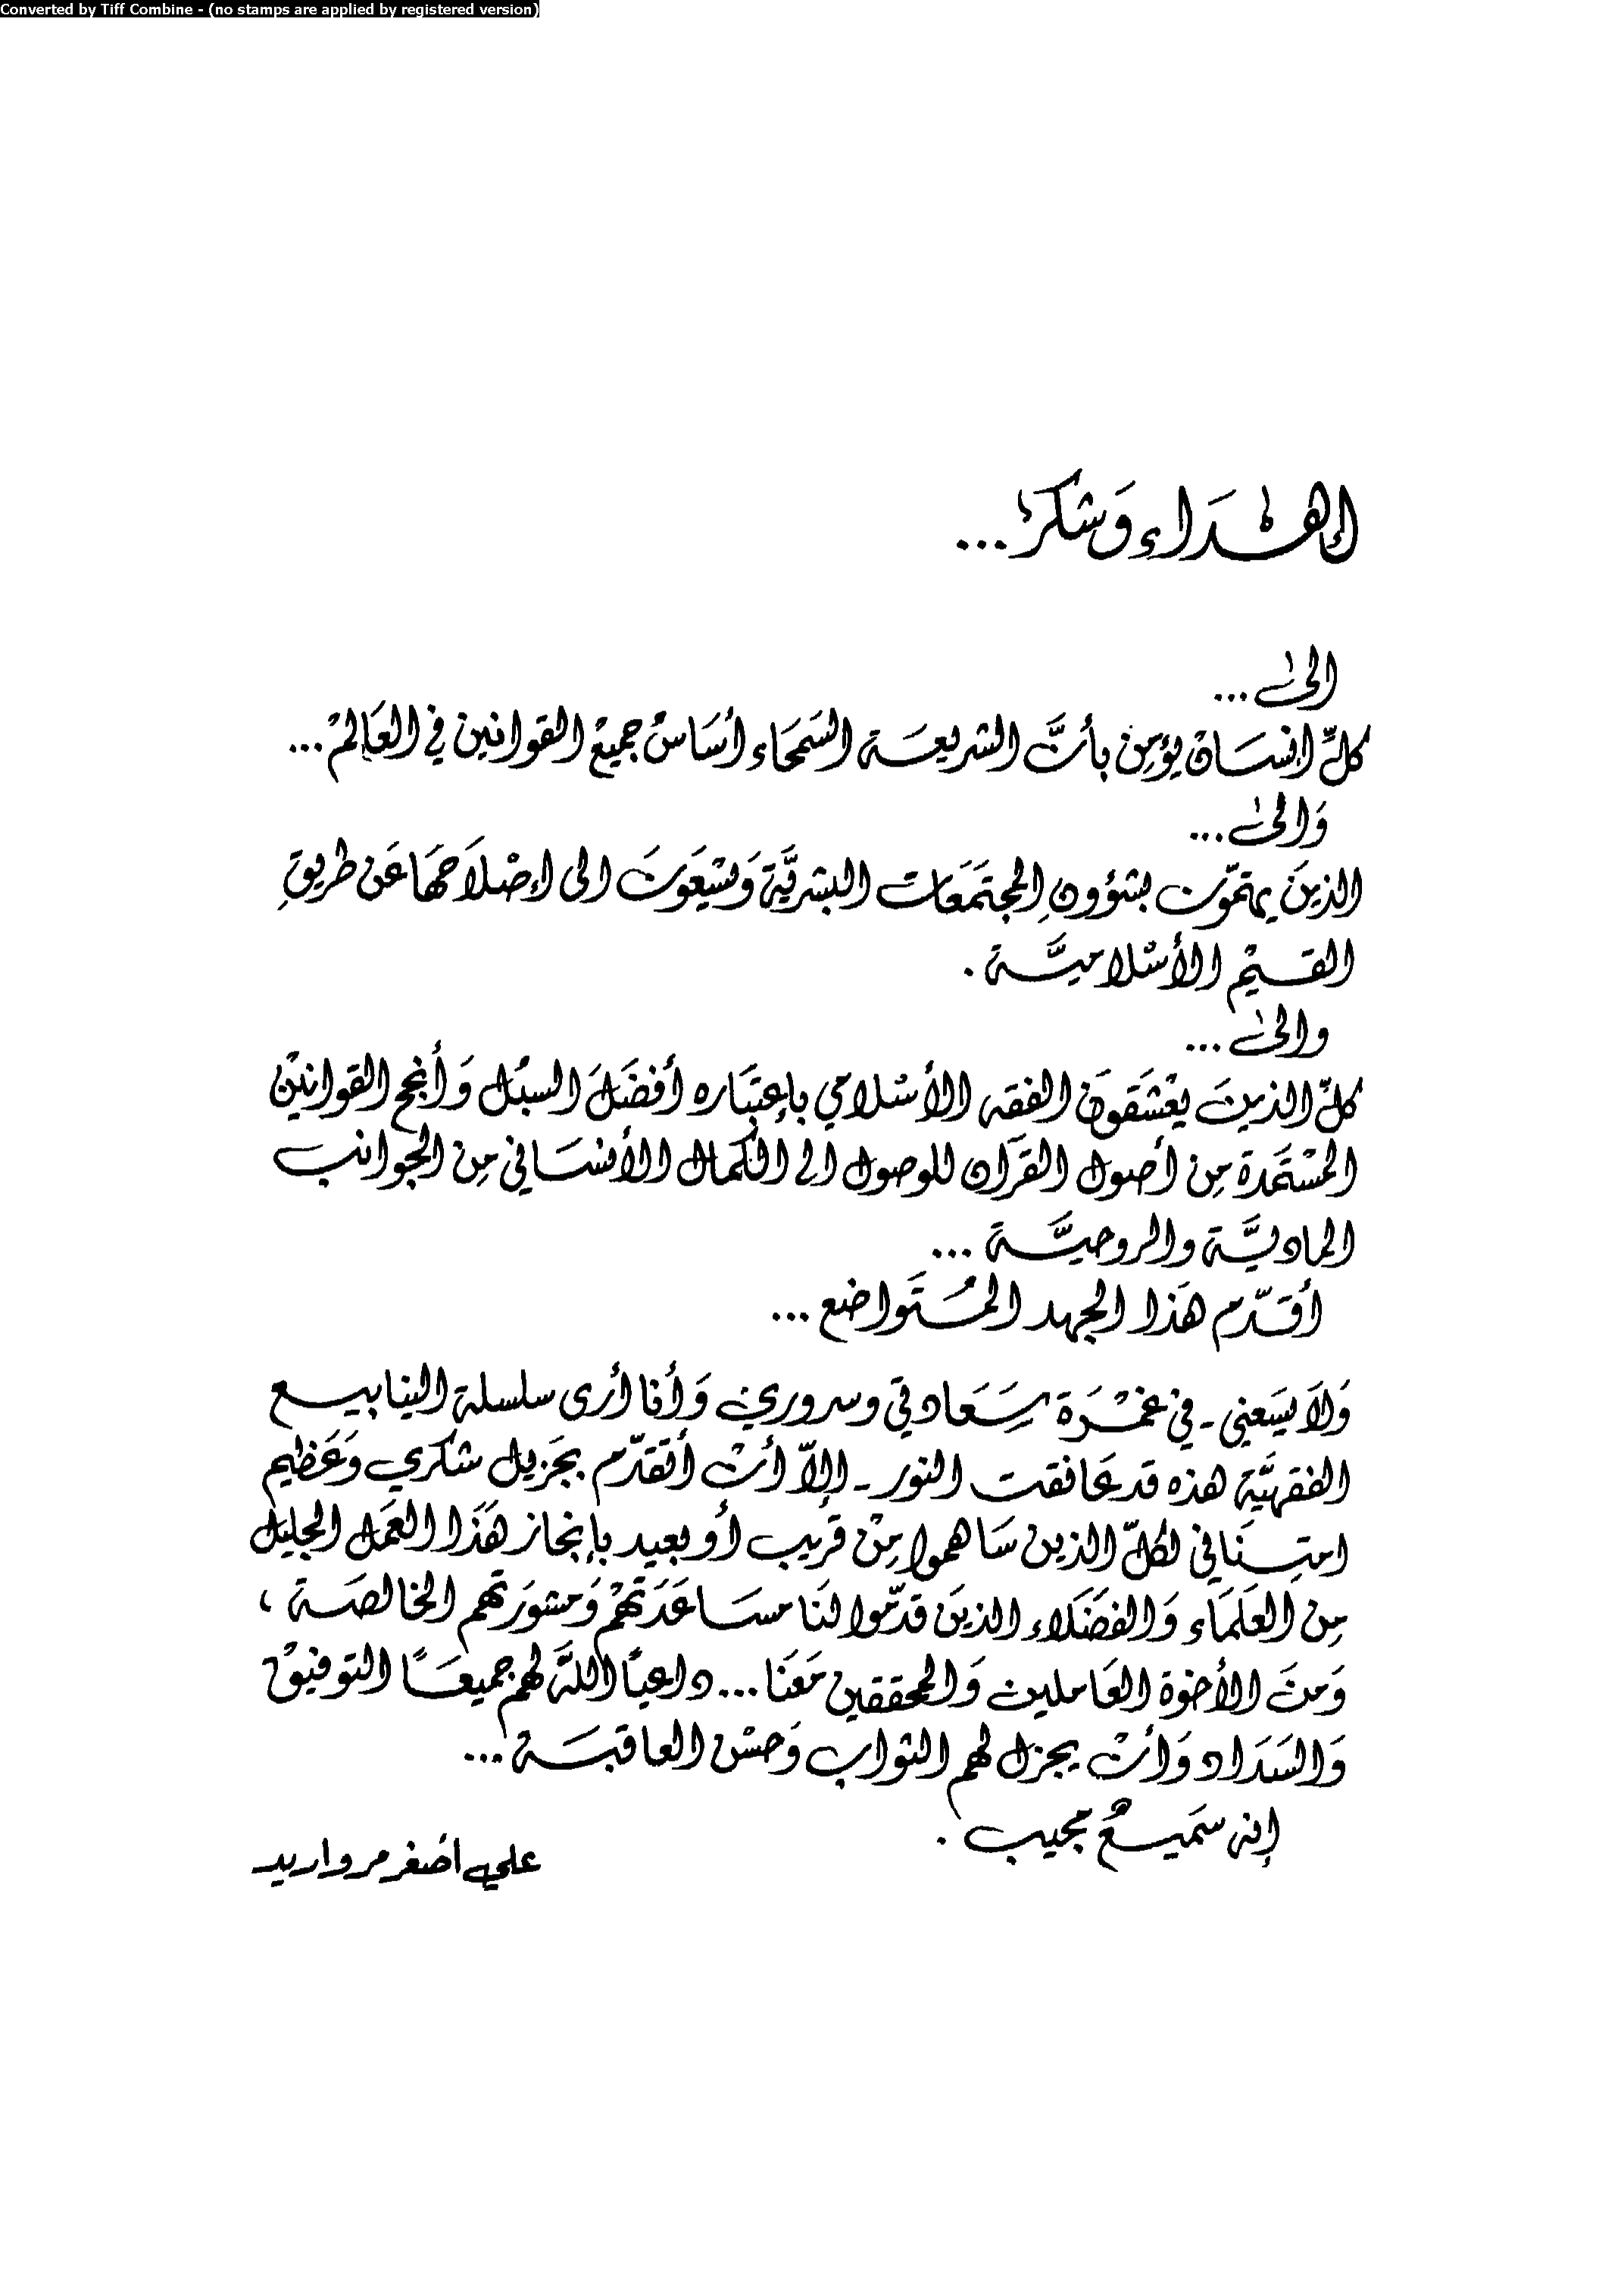 Converted by Tiff Combine - (no stamps are applied by registered version)
إهداء وَشكر ...
الىٰ ...
كلّ انسَان يؤمِن بأنَّ الشريعَة السَمحَاء أسَاسُ جميعْ القوانين في العَالمْ ...
وَالىٰ ...
الذينَ يهتمّون بشؤونِ المجتَمَعَات البشريَّة وَيسْعَونَ الى إصْلاَحهَا عَن طريقِ
القيمْ الأسْلاميَّة .
والىٰ ...
كلّ الذينَ يعْشَقونَ الفقه الأسْلامي بإعتبَاره أفضَلَ السبُل وَأنجح القوانيْن
المسْتمَدة مِن أصول القرآن للوصول الى الكمال الأنسَاني مِن الجوانب
الماديَّة والروحيَّة ...
أقدّم هَذا الجهد المُتَواضع ...
وَلاَ يسَعني - في غمْرَة سَعَادتي وسروري وَأنا أرى سلسلة الينابيع
الفقهيَّة هذه قد عَانقت النور - إلاّ أنْ أتقدّم بجَزيل شكري وَعَظيم
امتِنَاني لكلّ الذين سَاهموا مِنْ قريب أو بعيد بإنجاز هَذَا العمَل الجليل
مِن العلَمَاء وَالفضَلاء الذينَ قدّموا لنَا مسَاعَدَتهمْ وَمشورَتهم الخالصَة ،
وَمنَ الأخوَة العَاملين وَالمحققين مَعَنا ... داعيًا اللَّهَ لهم جميعًا التوفيقْ
وَالسَدَاد وَأنْ يجزل لهم الثواب وَحسْن العاقبَة ...
إنه سَميعٌ مجيب .
علي اصْغر مرواريد